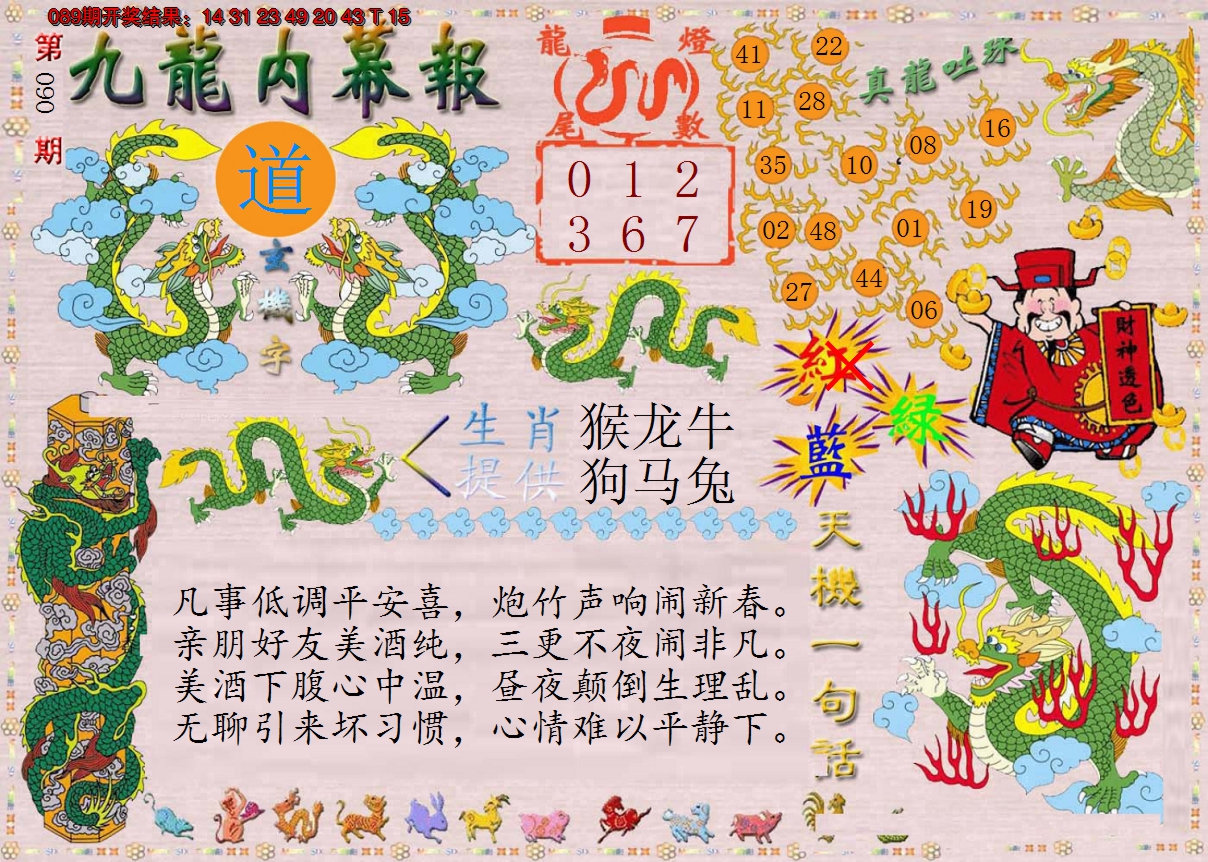 089期开奖结果：14 31 23 49 20 43 T 15
第
090
期
九龍内幕報
道
玄
機
字
龍 燈
尾 數
0 1 2
3 6 7
真龍吐珠
41
22
11
28
35
10
08
16
02
48
01
19
27
44
06
財神透色
紅
绿
藍
生肖
提供
猴龙牛
狗马兔
天機一句话
凡事低调平安喜，炮竹声响闹新春。
亲朋好友美酒纯，三更不夜闹非凡。
美酒下腹心中温，昼夜颠倒生理乱。
无聊引来坏习惯，心情难以平静下。